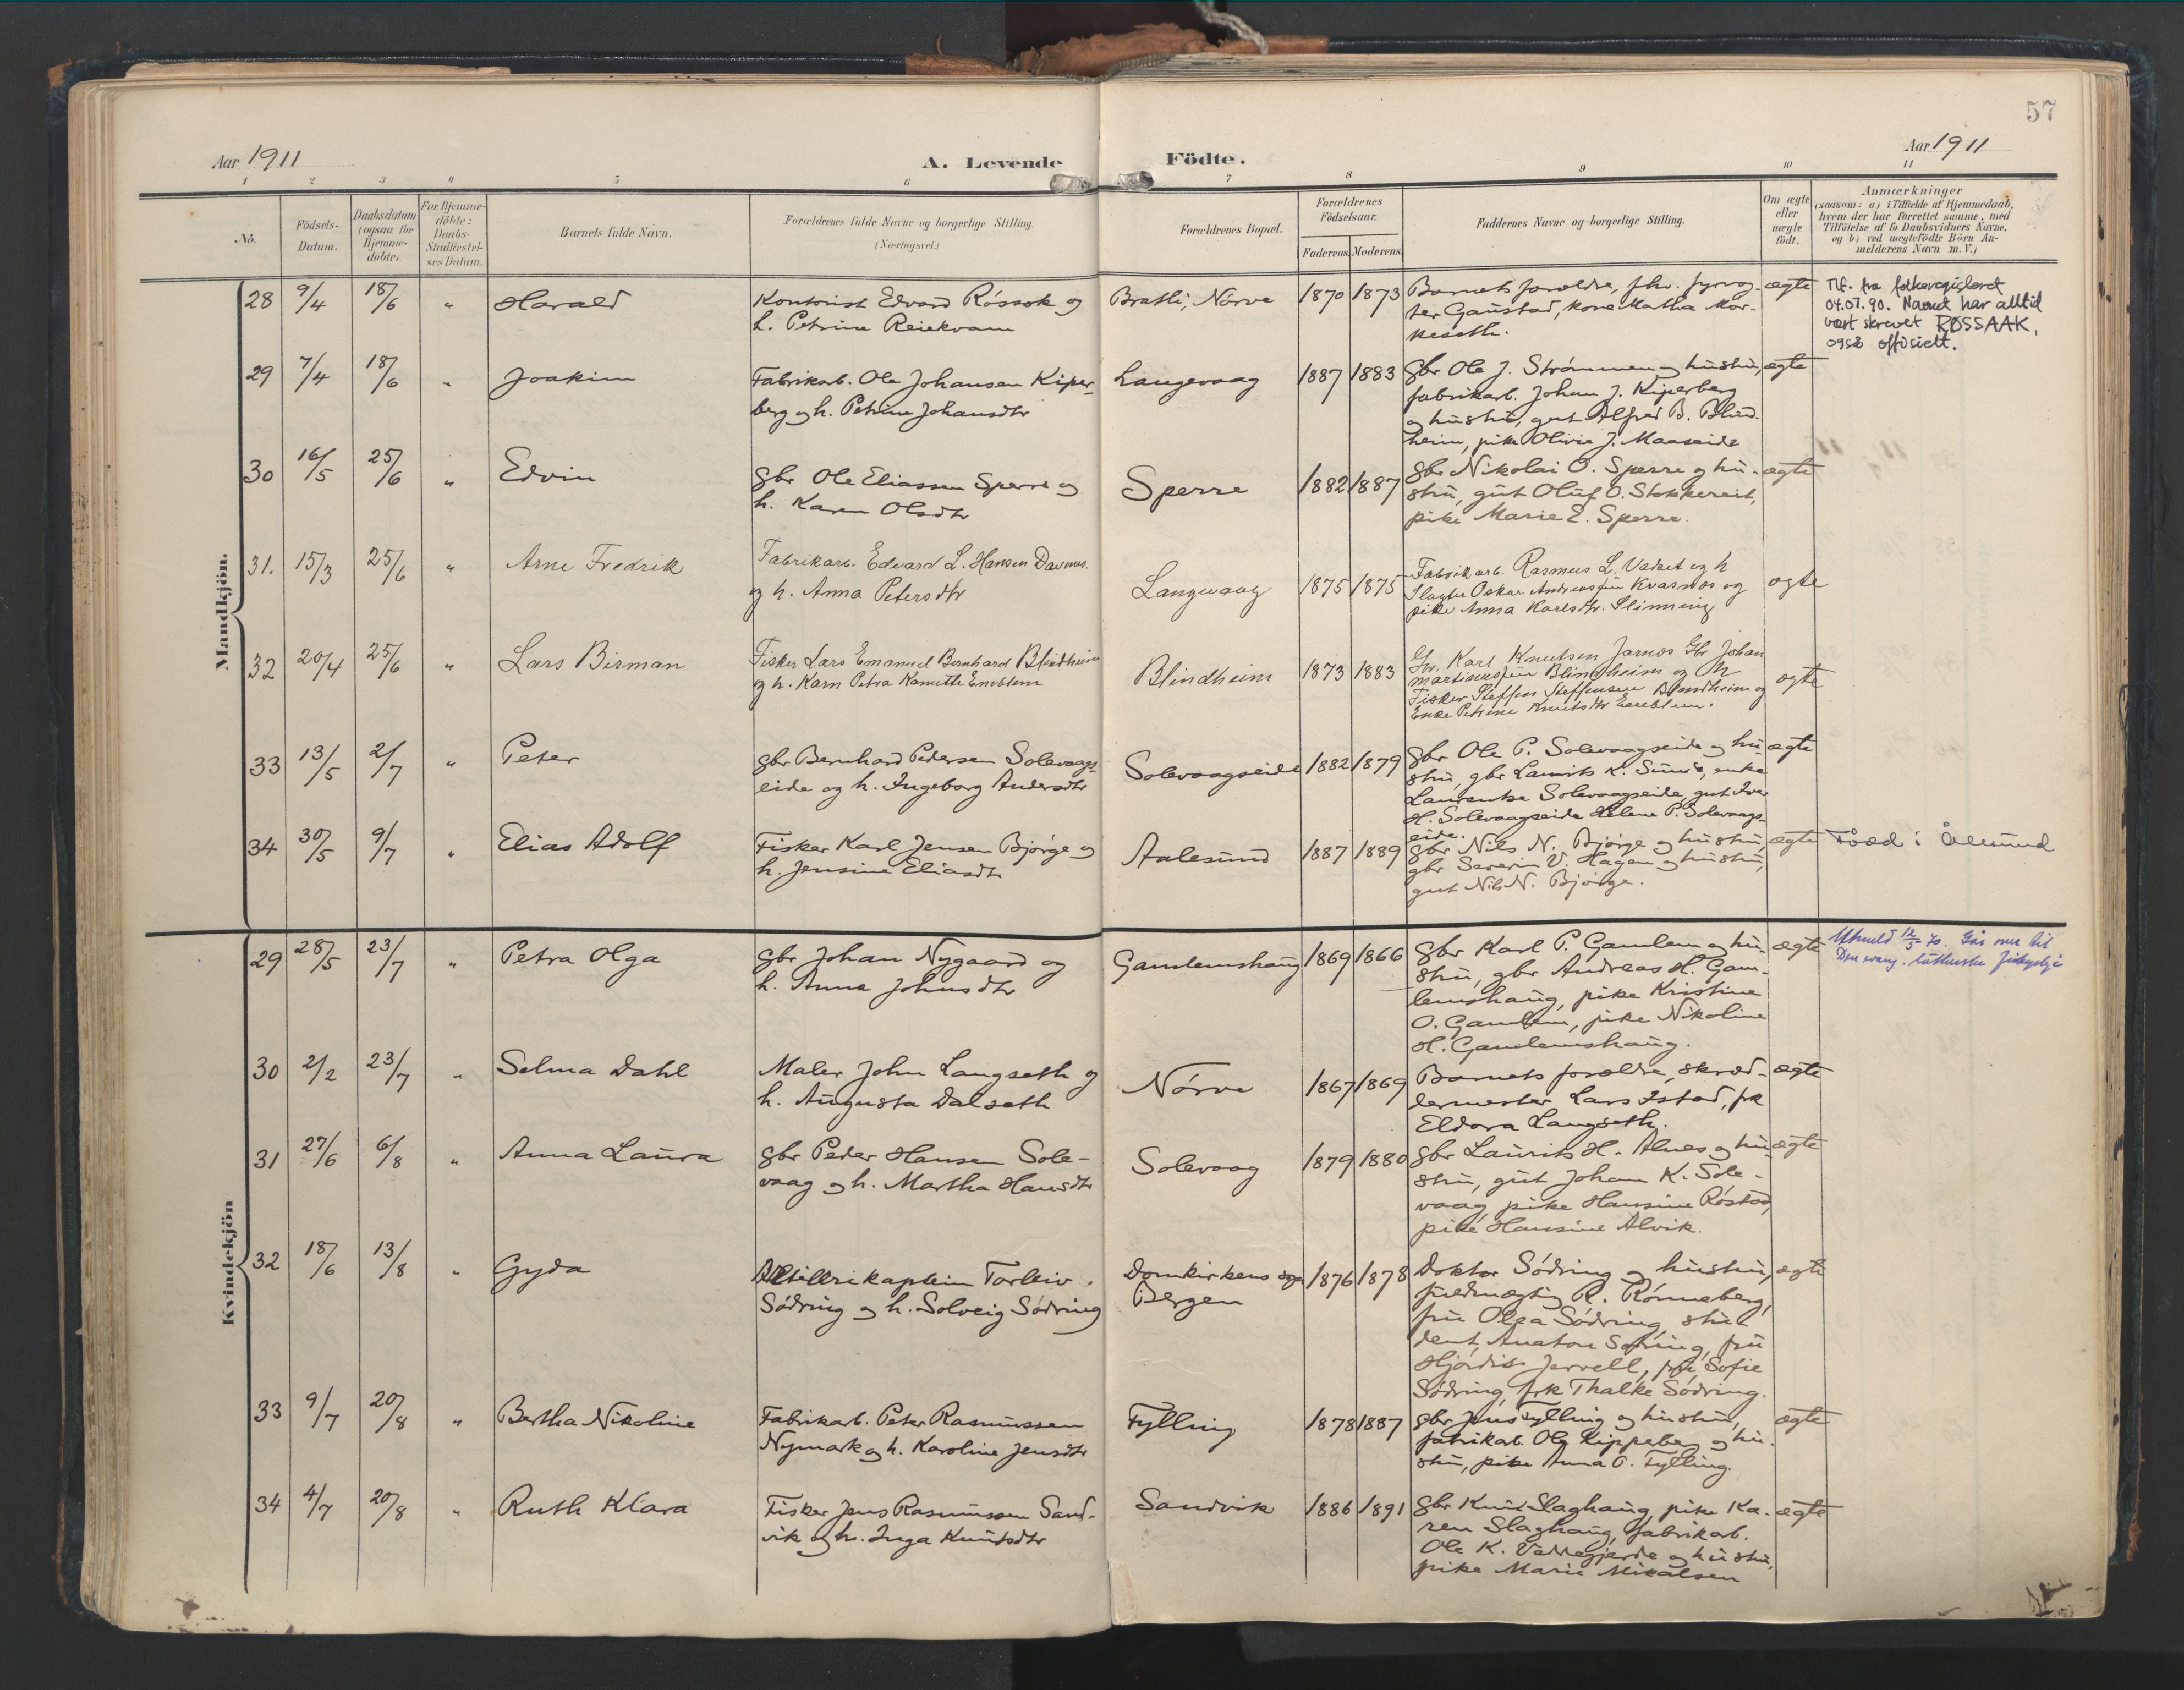 57
Aar 1911
A. Levende Födte.
Aar 1911
1 2 3 4 5 6 7 8 9 10 11
No.
Födsels-
Datum.
Daabsdatum
(ogsaa for
Hjemme-
döbte).
For Hjemme-
döbte:
Daabs-
Stadfæstel-
ses Datum.
Barnets fulde Navn.
Forældrenes fulde Navne og borgerlige Stilling.
(Næringsvei.)
Forældrenes Bopæl.
Forældrenes
Födselsaar.
Faderens. Moderens.
Faddernes Navne og borgerlige Stilling.
Om ægte
eller
uægte
födt.
Anmærkninger
(saasom: a) i Tilfælde af Hjemmedaab,
hvem der har forrettet samme, med
Tilföielse af to Daabsvidners Navne.
og b) ved uægtefödte Börn An-
melderens Navn m. V.)
Mandkjön.
28 9/4 18/6 " Harald
Kontorist Edvard Róssok og
h. Petrine Reiekvam
Bratli, Nórve 1870 1873
Barnets forældre, fhv. fyrvog-
ter Gaustad, kone Matha Mor-
keseth.
ægte
Tlf. fra folkeregisteret
04.07.90. Navnet har alltid
vært skrevet RØSSAAK,
også offisielt.
29 7/4 18/6 " Joakim
Fabrikarb. Ole Johansen Kiper-
berg og h. Petrine Johansdtr
Langevaag 1887 1883
gbr Ole J. Strómmen og hustru,
fabrikarb. Johan J. Kiperberg
og hustru, gut Alfred B. Blind-
heim, pike Olivie J. Maaseide
ægte
30 16/5 25/6 " Edvin
gbr Ole Eliassen Sperre og
h. Karen Olsdtr
Sperre 1882 1887
gbr Nikolai O. Sperre og hu-
stru, gut Oluf O. Stokkereit,
pike Marie E. Sperre.
ægte
31. 15/3 25/6 " Arne Fredrik
Fabrikarb. Edvard L. Hansen
og h. Anna Petersdtr
Langevaag 1875 1875
Fabrikarb. Rasmus L. Vadset og h
Slagter Oskar Andreassen Kvasnes og
pike Anna Karlsdtr. Slinning
ægte
32 20/4 25/6 " Lars Birman
Fisker Lars Emanuel Bernhard Blindheim
og h. Karn Petra Kanutte Emblem
Blindheim 1873 1883
Gbr. Karl Knutsen Jarnes Gbr Johan
Blindheim og h
Fisker Steffen Steffensen Blindheim og
Enke Petrine Knutsdtr Emblem.
ægte
33 13/5 2/7 " Peter
gbr Bernhard Pedersen Solevaags-
eide og h. Ingeborg Andersdtr
Solevaagseide 1882 1879
gbr Ole P. Solevaagseide og hu-
stru, gbr Laurits K. Sunde, enke
Laurentse Solevaagseide, gut Iver
H. Solevaagseide Helene P. Solevaags-
eide.
ægte
34 30/5 9/7 " Elias Adolf
Fisker Karl Jensen Bjórge og
h. Jensine Eliasdtr
Aalesund 1887 1889
gbr Nils N. Bjórge og hustru,
gbr Severin V. Hagen og hustru,
gut Nils N. Bjórge.
ægte
Född i Ålesund
Kvindekjön
29 28/5 23/7 " Petra Olga
gbr Johan Nygaard og
h. Anna Johnsdtr
Gamlemshaug 1869 1866
gbr Karl P. Gamlem og hu-
stru, gbr Andreas H. Gam-
lemshaug, pike Kristine
O. Gamlem, pike Nikoline
H. Gamlemshaug.
ægte
Utmeld 12/5 70. Går over til
Den evang. lutherske frikyrkje
30 2/2 23/7 " Selma Dahl
Maler John Langseth og
h. Augusta Dalseth
Nórve 1867 1869
Barnets forældre, skræd-
dermester Lars Istad, frk
Eldora Langseth.
ægte
31 27/6 6/8 " Anna Laura
gbr Peder Hansen Sole-
vaag og h. Martha Hansdtr
Solevaag 1879 1880
gbr Laurits H. Alnes og hu-
stru, gut Johan K. Sole-
vaag, pike Hansine Róstad,
pike Hansine Alvik.
ægte
32 18/6 13/8 " Gyda
Artillrikaptein Torleiv
Södring og h. Solveig Södring
Domkirkens sogn
Bergen
1876 1878
Doktor Södring og hustru,
fuldmægtig R. Rónneberg,
fru Olga Södring, stu-
dent Anaton Södring, fru
Hjórdis Jervell, frk Sofie
Södring, frk Thalke Södring.
ægte
33 9/7 20/8 " Bertha Nikoline
Fabrikarb. Peter Rasmussen
Nymark og h. Karoline Jensdtr
Fylling 1878 1887
gbr Jens Fylling og hustru,
fabrikarb. Ole Kipperberg og hu-
stru, pike Anna O. Fylling.
ægte
34 4/7 20/8 " Ruth Klara
Fisker Jens Rasmussen Sand-
vik og h. Inga Knutsdtr
Sandvik 1886 1891
gbr Knut Slaghaug, pike Ka-
ren Slaghaug, fabrikarb.
Ole K. Veddegjerde og hustru,
pike Marie Mikalsen
ægte